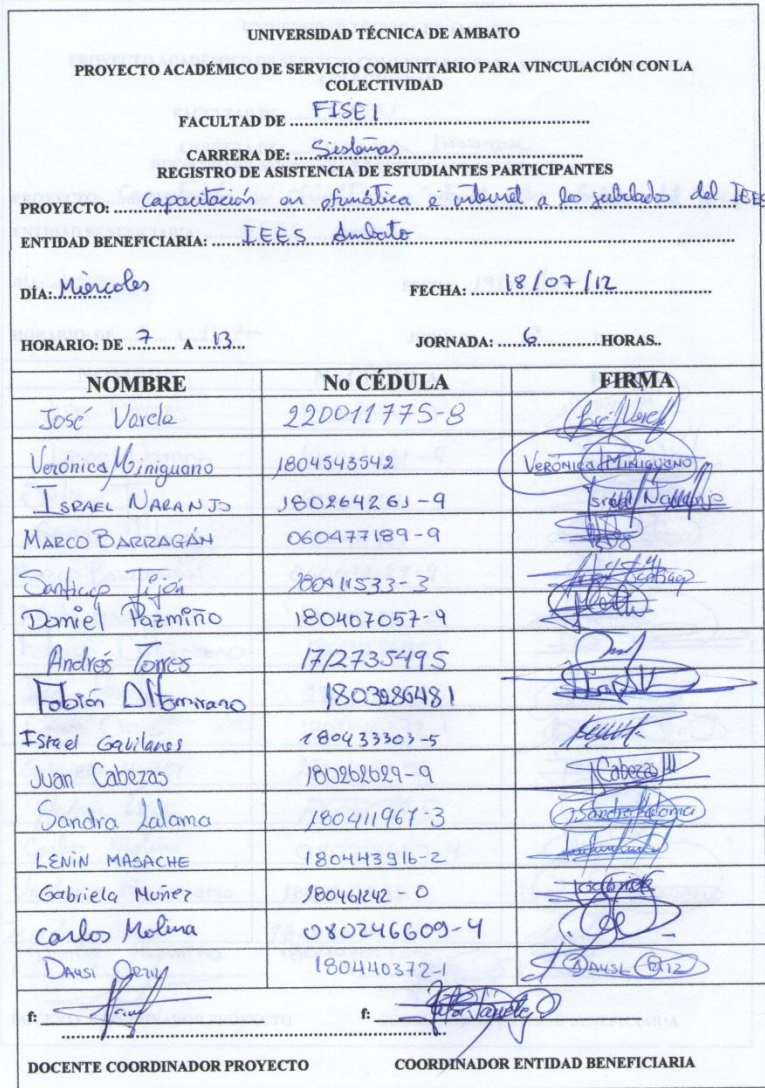 UNIVERSIDAD TÉCNICA DE AMBATO
PROYECTO ACADÉMICO DE SERVICIO COMUNITARIO PARA VINCULACIÓN CON LA
COLECTIVIDAD
FACULTAD DE FISEI
CARRERA DE: Sistemas
REGISTRO DE ASISTENCIA DE ESTUDIANTES PARTICIPANTES
PROYECTO: Capacitación en ofimática e internet a los jubilados del IEES
ENTIDAD BENEFICIARIA: IEES Ambato
DÍA: Miércoles FECHA: 18/07/12
HORARIO: DE 7 A 13 JORNADA: 6 HORAS..
NOMBRE No CÉDULA FIRMA
José Varela 220011775-8 José Varela
Verónica Miniguano 1804543542 VERÓNICA MINIGUANO
ISRAEL NARANJO 180264261-9 Israel Naranjo
MARCO BARRAGÁN 060477189-9
Santiago Tijón 180411533-3 Santiago
Daniel Pazmiño 180407057-9
Andrés Torres 1712735415
Fabián Altamirano 1803286481
Israel Gavilanes 180433303-5
Juan Cabezas 180262629-9 Cabezas
Sandra Lalama 180411967-3 Sandra Lalama
LENIN MASACHE 180443916-2
Gabriela Nuñez 180461242-0
Carlos Molina 080246609-4
DAYSI ORTIZ 180440372-1 DAYSI ORTIZ
f: f:
DOCENTE COORDINADOR PROYECTO COORDINADOR ENTIDAD BENEFICIARIA